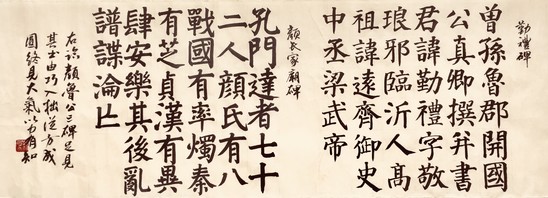 勤禮碑
曾孫魯郡開國
公真卿撰并書
君諱勤禮字敬
琅邪臨沂人高
祖諱遠齊御史
中丞梁武帝
顏氏家廟碑
孔門達者七十
二人顏氏有八
戰國有率燭秦
有芝貞漢有異
肆安樂其後亂
譜諜淪亡
右臨顏魯公三碑足見
其書由巧入拙從方成
圓終見大氣以有知